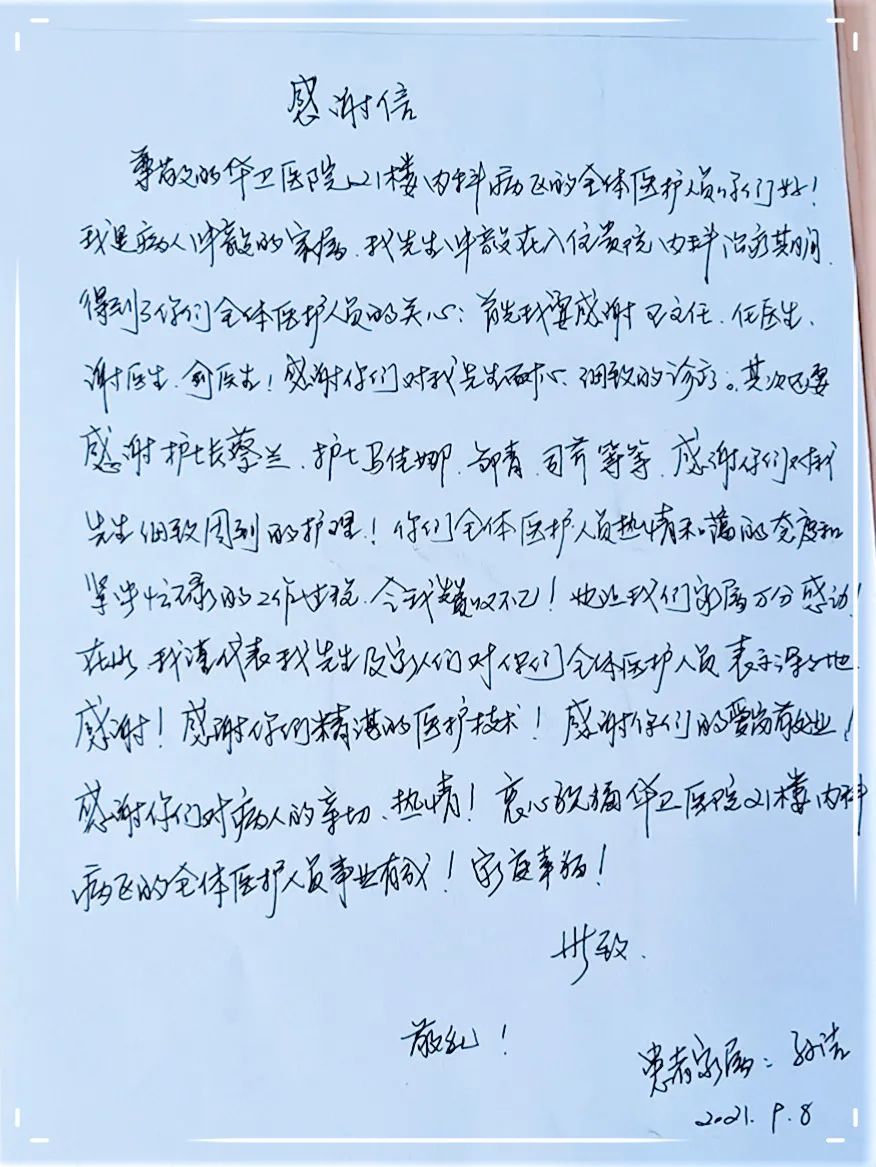 感谢信
尊敬的华卫医院21楼内科病区的全体医护人员你们好!
我是病人的家属、我先生在入住贵院内科治疗期间、
得到了你们全体医护人员的关心:首先我要感谢主任、任医生、
谢医生、俞医生!感谢你们对我先生耐心、细致的诊疗。其次还要
感谢护士长蔡兰、护士马佳娜、邹青、司芹等等、感谢你们对我
先生细致周到的护理!你们全体医护人员热情和蔼的态度和
紧张忙碌的工作、令我赞叹不已!也让我们家属万分感动!
在此、我谨代表我先生及家人们对你们全体医护人员表示深深地
感谢!感谢你们精湛的医护技术!感谢你们的爱岗敬业!
感谢你们对病人的亲切、热情!衷心祝福华卫医院21楼内科
病区的全体医护人员事业有成!家庭幸福!
此致、
敬礼!
患者家属:孙洁
2021.9.8